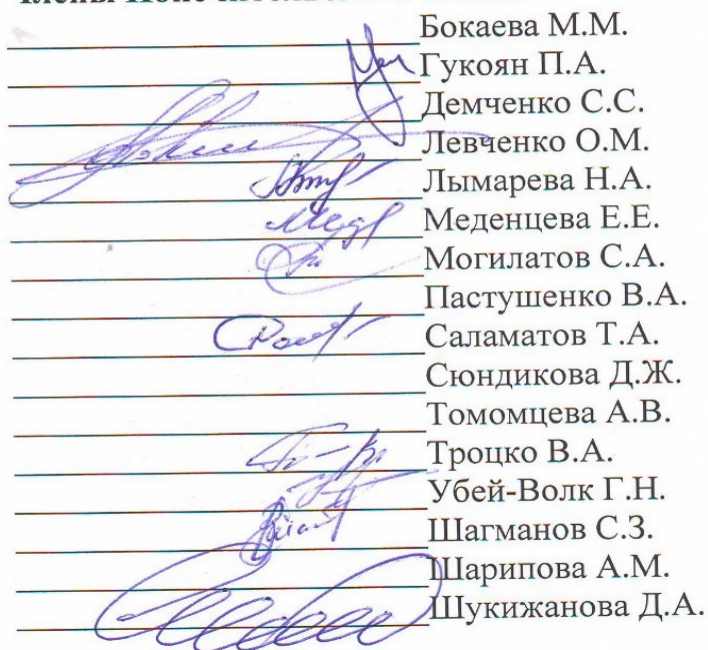 Члены
Бокаева М.М.
Гукоян П.А.
Демченко С.С.
Левченко О.М.
Лымарева Н.А.
Меденцева Е.Е.
Могилатов С.А.
Пастушенко В.А.
Саламатов Т.А.
Сюндикова Д.Ж.
Томомцева А.В.
Троцко В.А.
Убей-Волк Г.Н.
Шагманов С.З.
Шарипова А.М.
Шукижанова Д.А.